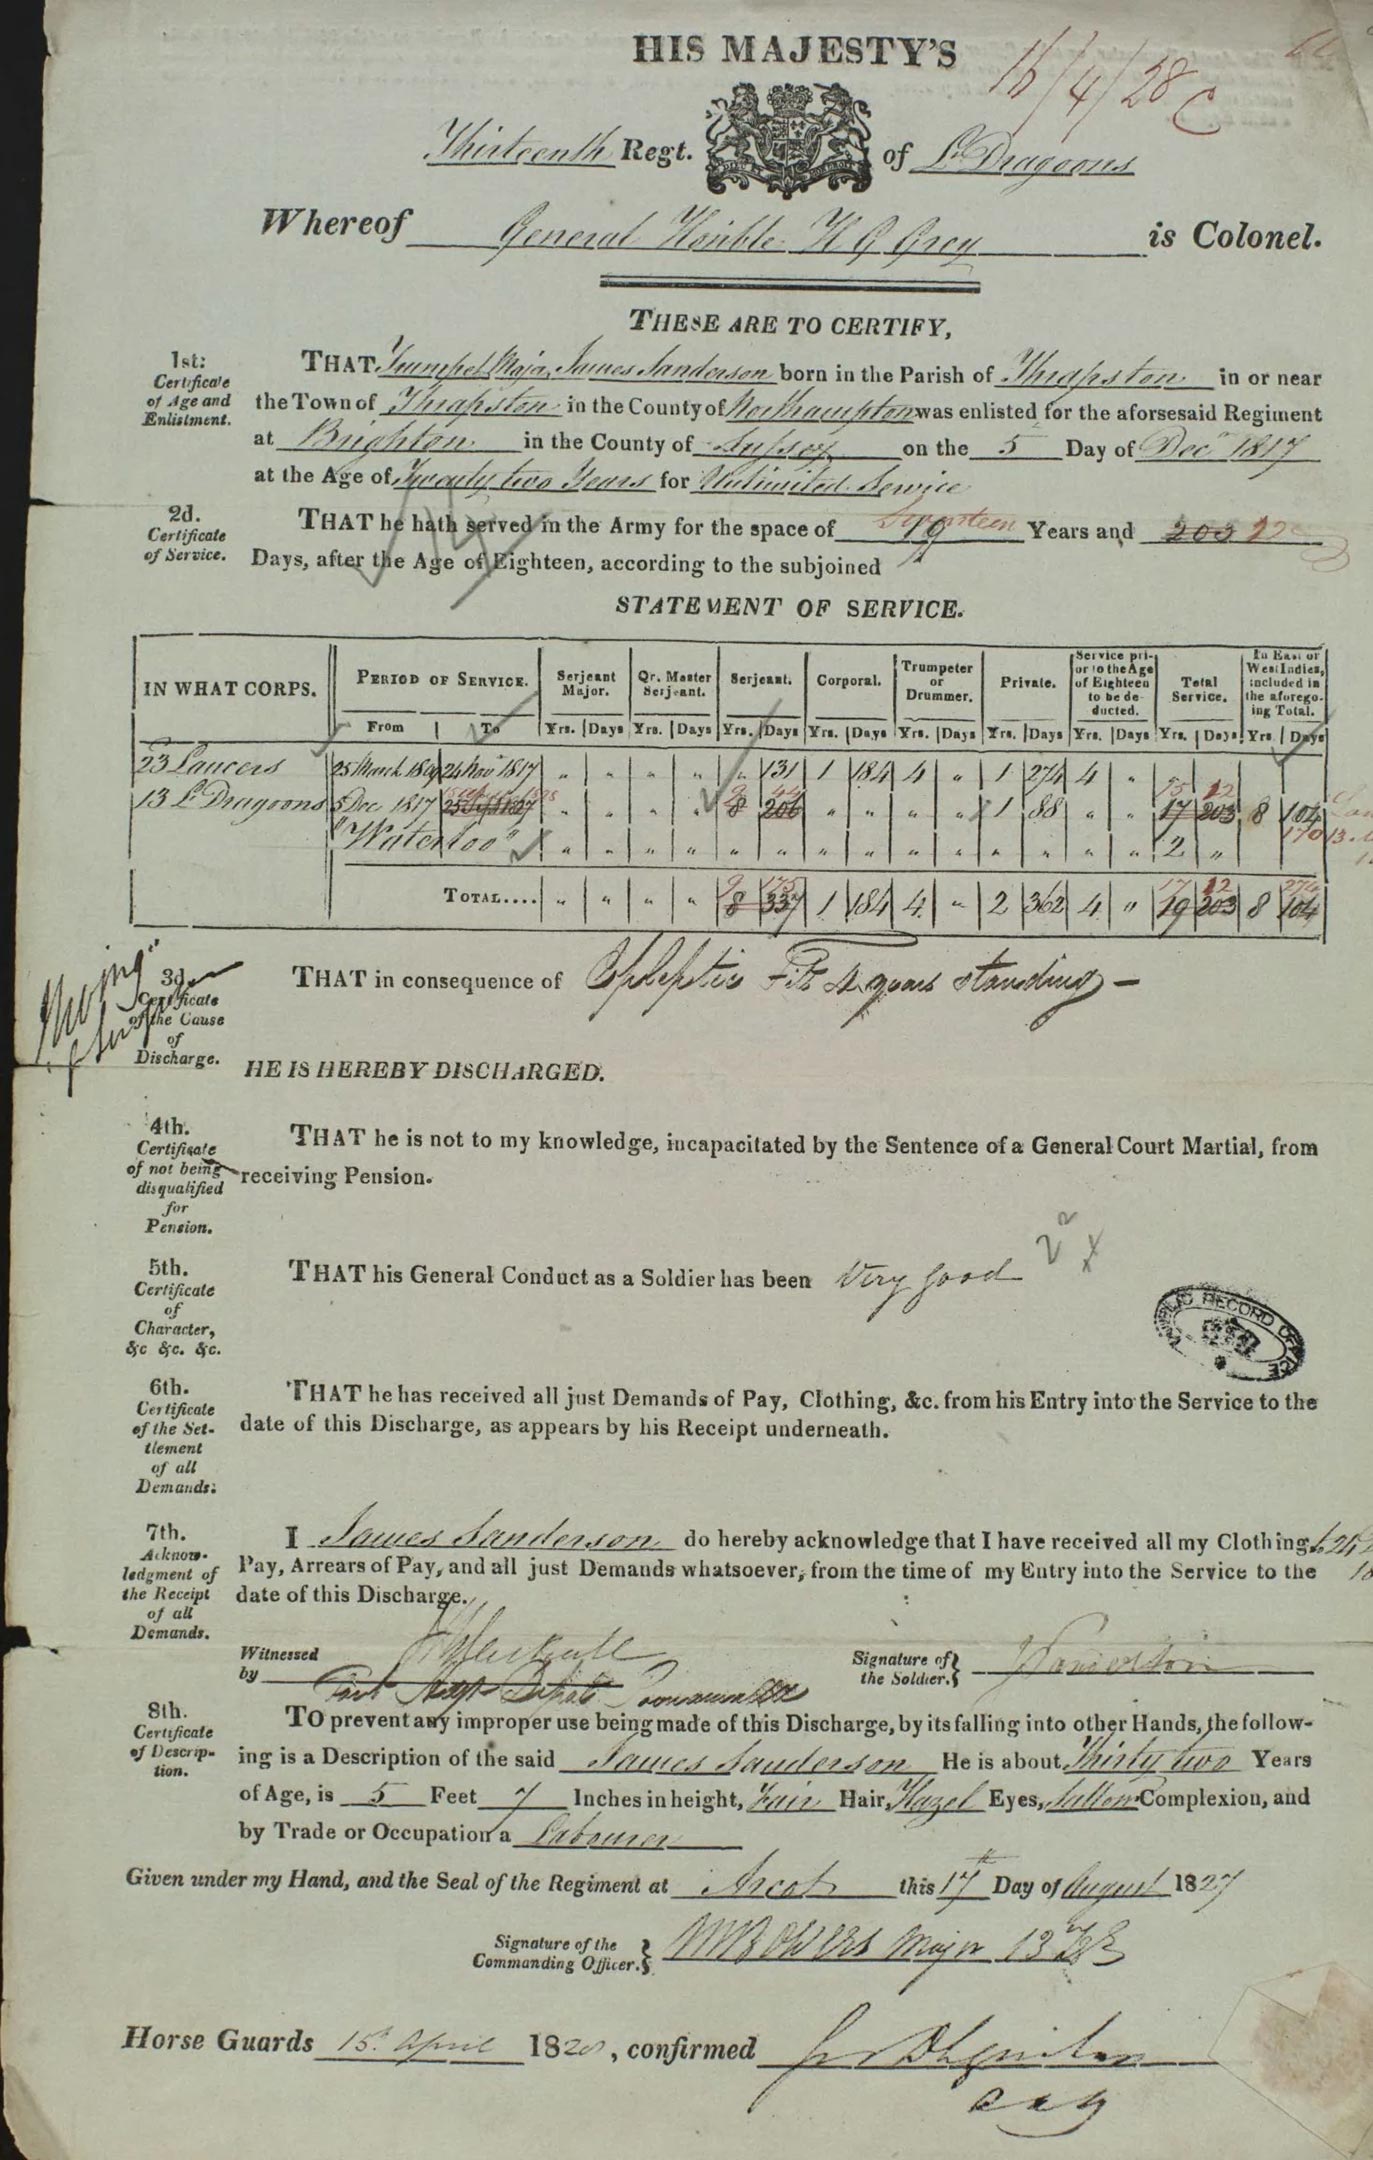 HIS MAJESTY'S
16/4/28 C
Thirteenth Regt. of Lt Dragoons
Whereof General Honble H G Grey is Colonel.
THESE ARE TO CERTIFY,
1st:
Certificate
of Age and
Enlistment.
THAT Trumpet Major James Sanderson born in the Parish of Thrapston in or near
the Town of Thrapston in the County of Northampton was enlisted for the aforsesaid Regiment
at Brighton in the County of Sussex on the 5 Day of Decr 1817
at the Age of Twenty two Years for Unlimited Service
2d.
Certificate
of Service.
THAT he hath served in the Army for the space of 19 Seventeen Years and 203 12
Days, after the Age of Eighteen, according to the subjoined
STATEMENT OF SERVICE.
IN WHAT CORPS. PERIOD OF SERVICE. Serjeant Major. Qr. Master Serjeant. Serjeant. Corporal. Trumpeter or Drummer. Private. Service prior to the Age of Eighteen to be deducted. Total Service. In East or West Indies, included in the aforegoing Total.
From To Yrs. Days Yrs. Days Yrs. Days Yrs. Days Yrs. Days Yrs. Days Yrs. Days Yrs. Days Yrs. Days
23 Lancers 25 March 1809 24 Nov 1817 " " " " " 131 1 184 4 " 1 274 4 "
9 44 15 12
13 Lt Dragoons 5 Dec 1817 " " " " 8 206 " " " " 1 88 " " 17 203 8 104
170
"Waterloo" " " " " " " " " " " " " " " 2 "
9 175 17 12 274
TOTAL.... " " " " 8 337 1 184 4 " 2 362 4 " 19 203 8 104
3d.
Certificate
of the Cause
of
Discharge.
THAT in consequence of Epileptic Fits 4 years standing –
HE IS HEREBY DISCHARGED.
4th.
Certificate
of not being
disqualified
for
Pension.
THAT he is not to my knowledge, incapacitated by the Sentence of a General Court Martial, from
receiving Pension.
5th.
Certificate
of
Character,
&c &c. &c.
THAT his General Conduct as a Soldier has been Very good
PUBLIC RECORD OFFICE
6th.
Certificate
of the Set-
tlement
of all
Demands.
THAT he has received all just Demands of Pay, Clothing, &c. from his Entry into the Service to the
date of this Discharge, as appears by his Receipt underneath.
7th.
Acknow-
ledgment of
the Receipt
of all
Demands.
I James Sanderson do hereby acknowledge that I have received all my Clothing,
Pay, Arrears of Pay, and all just Demands whatsoever, from the time of my Entry into the Service to the
date of this Discharge.
Witnessed
by
Signature of
the Soldier. J Sanderson
8th.
Certificate
of Descrip-
tion.
TO prevent any improper use being made of this Discharge, by its falling into other Hands, the follow-
ing is a Description of the said James Sanderson He is about Thirty two Years
of Age, is 5 Feet 7 Inches in height, Fair Hair, Hazel Eyes, Sallow Complexion, and
by Trade or Occupation a Labourer
Given under my Hand, and the Seal of the Regiment at Arcot this 17th Day of August 1827
Signature of the
Commanding Officer. Bowers Major 13
Horse Guards 15t April 1828, confirmed